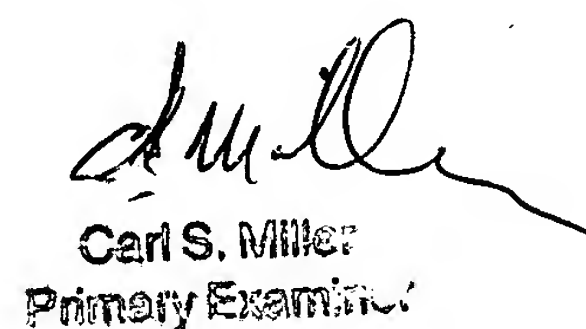 Carl S. Miller
Primary Examiner